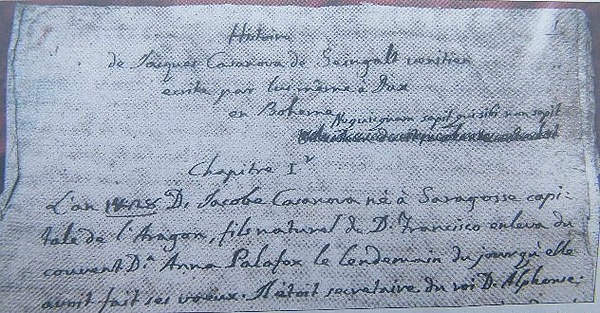 Histoire
de Jacques Casanova de Seingalt venitien
ecrite par lui même à Dux
en Boheme
Nequicquam sapit qui sibi non sapit
Chapitre Ir
L'an 1428 D. Jacobe Casanova né à Saragosse capi-
tale de l'Aragon, fils naturel de D. Francisco enleva du
couvent D.a Anna Palafox le lendemain du jour qu'elle
avoit fait ses voeux. Il étoit secretaire du roi D. Alphonse.